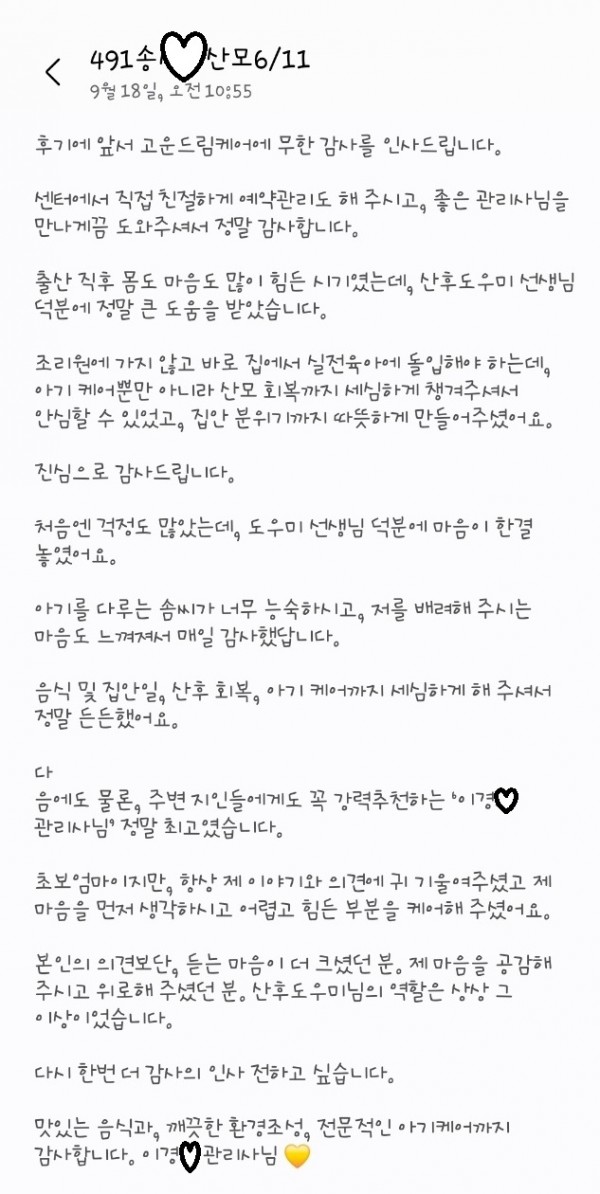 491송 산모6/11
9월 18일, 오전 10:55
후기에 앞서 고운드림케어에 무한 감사를 인사드립니다.
센터에서 직접 친절하게 예약관리도 해 주시고, 좋은 관리사님을
만나게끔 도와주셔서 정말 감사합니다.
출산 직후 몸도 마음도 많이 힘든 시기였는데, 산후도우미 선생님
덕분에 정말 큰 도움을 받았습니다.
조리원에 가지 않고 바로 집에서 실전육아에 돌입해야 하는데,
아기 케어뿐만 아니라 산모 회복까지 세심하게 챙겨주셔서
안심할 수 있었고, 집안 분위기까지 따뜻하게 만들어주셨어요.
진심으로 감사드립니다.
처음엔 걱정도 많았는데, 도우미 선생님 덕분에 마음이 한결
놓였어요.
아기를 다루는 솜씨가 너무 능숙하시고, 저를 배려해 주시는
마음도 느껴져서 매일 감사했답니다.
음식 및 집안일, 산후 회복, 아기 케어까지 세심하게 해 주셔서
정말 든든했어요.
다
음에도 물론, 주변 지인들에게도 꼭 강력추천하는 '이경
관리사님' 정말 최고였습니다.
초보엄마이지만, 항상 제 이야기와 의견에 귀 기울여주셨고 제
마음을 먼저 생각하시고 어렵고 힘든 부분을 케어해 주셨어요.
본인의 의견보단, 듣는 마음이 더 크셨던 분. 제 마음을 공감해
주시고 위로해 주셨던 분. 산후도우미님의 역할은 상상 그
이상이었습니다.
다시 한번 더 감사의 인사 전하고 싶습니다.
맛있는 음식과, 깨끗한 환경조성, 전문적인 아기케어까지
감사합니다. 이경 관리사님 💛